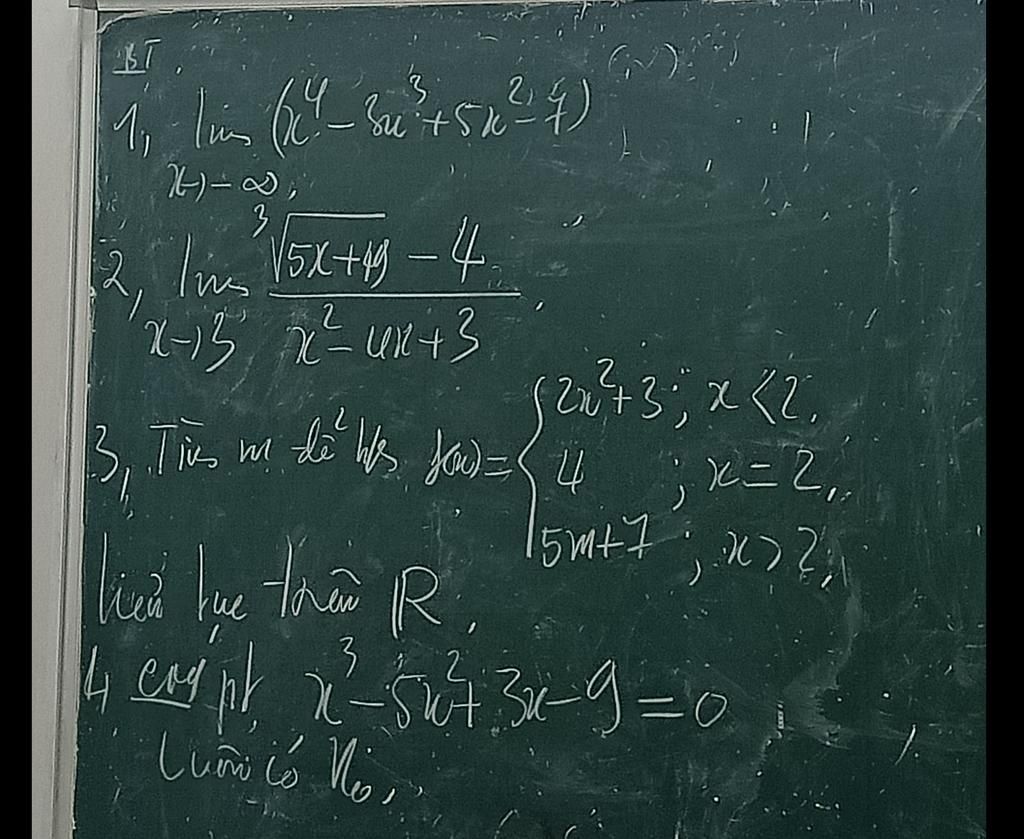 BT.
1, lim (x⁴ - 3x³ + 5x² - 7)
x→-∞.
2, lim ∛(5x+49) - 4
x→3 x² - 4x + 3
3, Tìm m để h/s f(x) = { 2x² + 3 ; x < 2.
4 ; x = 2.
5m+7 ; x > 2.
liên tục trên ℝ.
4 cmr pt x³ - 5x² + 3x - 9 = 0
luôn có No.